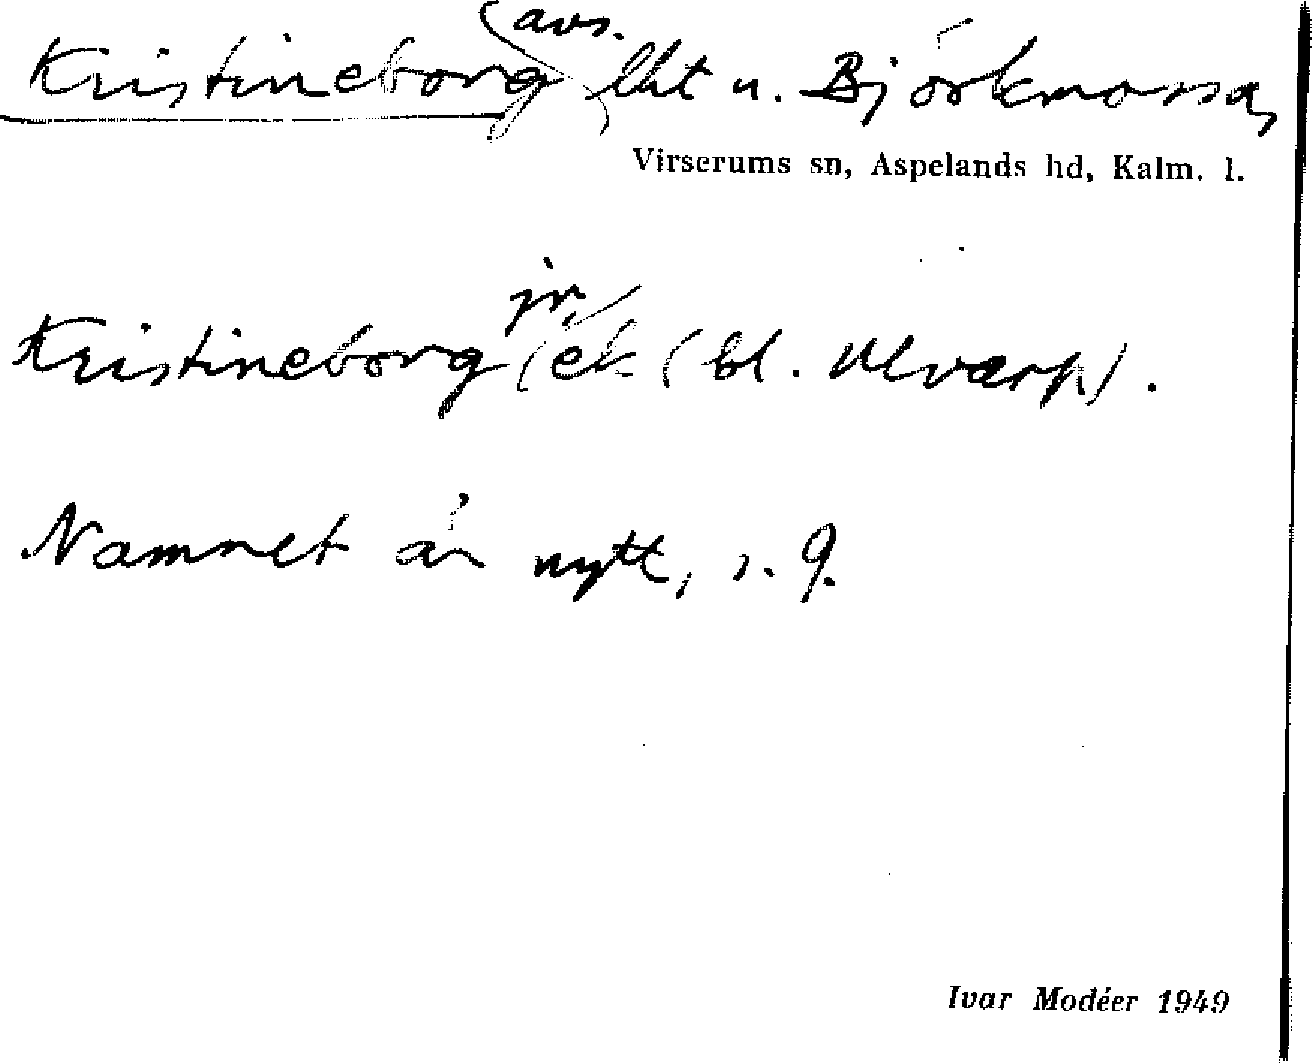 Kristineborg, avs. lht u. Björkmossa,
Virserums sn, Aspelands hd, Kalm. l.
Kristineborg jr, ek (bl. Ulvarp).
Namnet är nytt, s. 9.
Ivar Modéer 1949